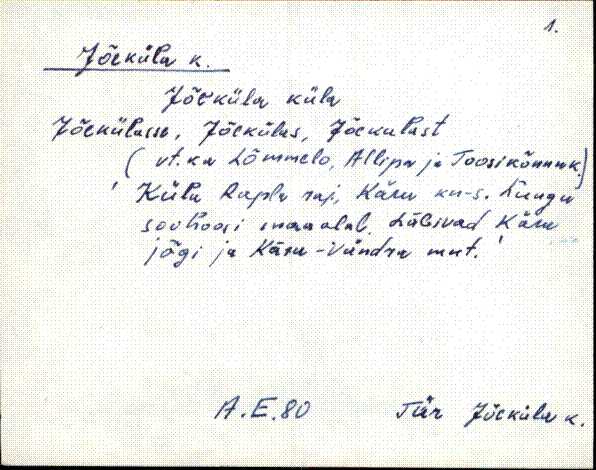 1.
Jõeküla k.
Jõeküla küla
Jõekülasse, Jõekülas, Jõekülast
(vt. ka Lõmmelo, Allipa ja Toosikõnnu k.)
Küla Rapla raj, Käru kn-s. Lungu
sovhoosi maaalal. Läbivad Käru
jõgi ja Käru-Vändra mnt.
A.E.80 Tür Jõeküla k.